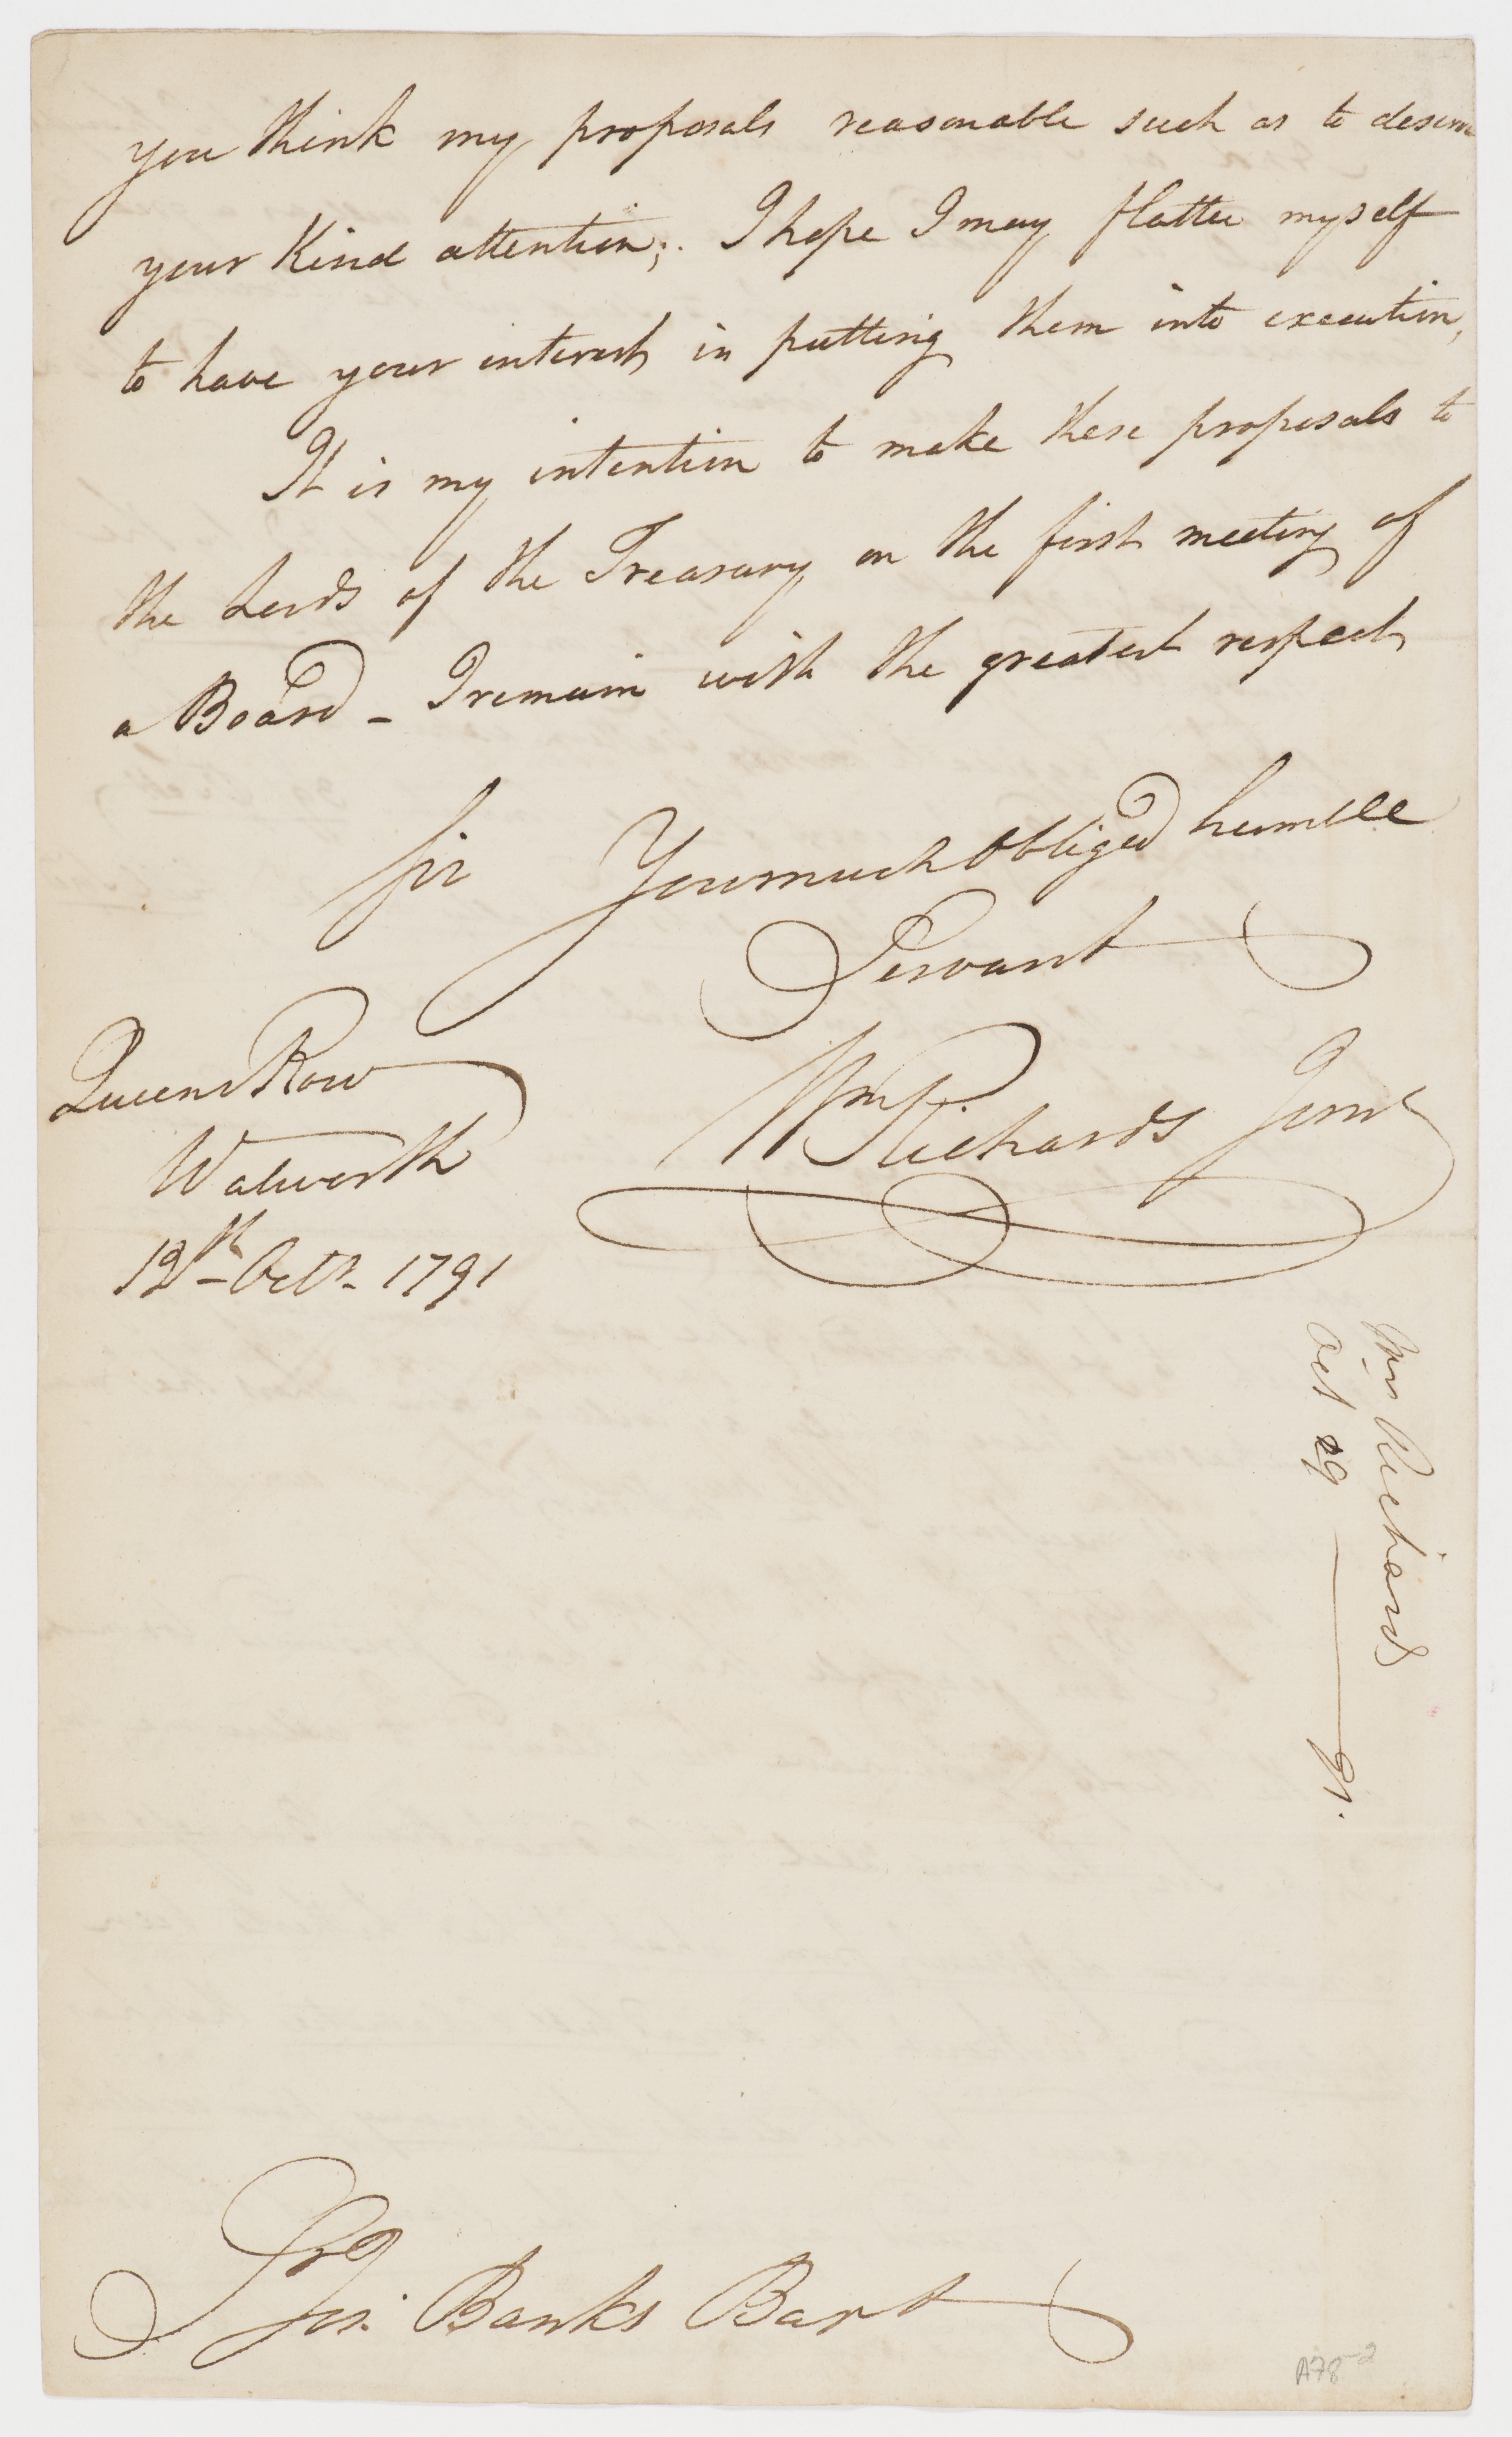 you think my proposals reasonable such as to deserve
your Kind attention; I hope I may flatter myself
to have your interest in putting them into execution,
It is my intention to make these proposals to
the Lords of the Treasury on the first meeting of
a Board - I remain with the greatest respect
Sir Your much Obliged humble
Servant
Wm Richards Junr
Queens Row
Walworth
Octr 1791
Wm Richards
Oct 29 — 91.
Sir Jos. Banks Bart
A78-2